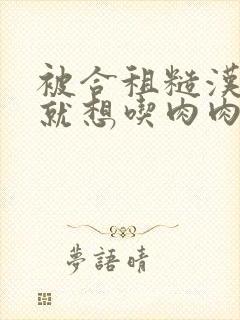 被合租糙漢
就想喫肉肉
夢語晴